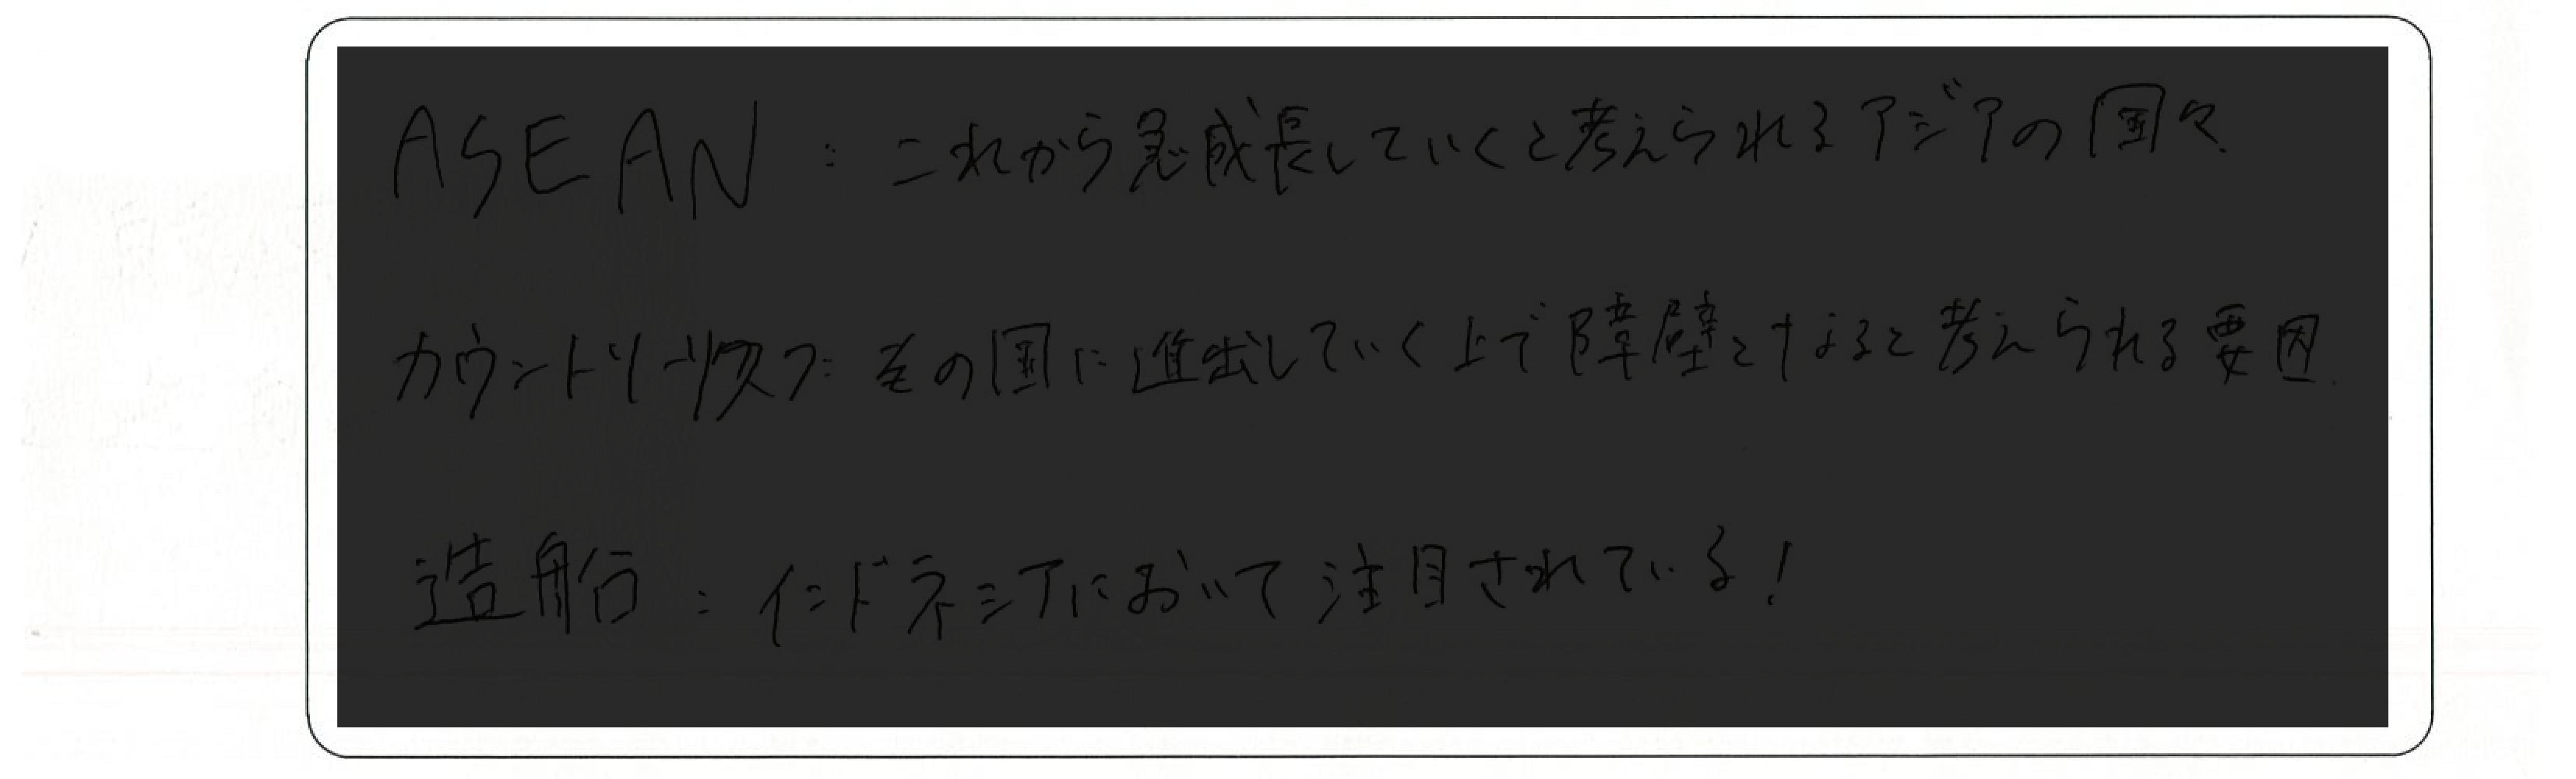 ASEAN : これから急成長していくと考えられるアジアの国々.
カウントリーリスク: その国に進出していく上で障壁となると考えられる要因.
造船 : インドネシアにおいて注目されている!